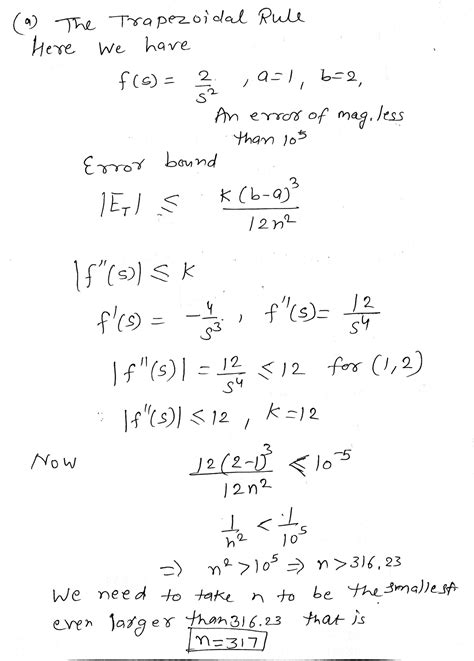 (a) The Trapezoidal Rule
Here we have
f(s) = 2/s² , a=1, b=2,
An error of mag. less
than 10⁻⁵
Error bound
|E_T| ≤ K(b-a)³/12n²
|f''(s)| ≤ K
f'(s) = -4/s³ , f''(s) = 12/s⁴
|f''(s)| = 12/s⁴ ≤ 12 for (1,2)
∴ |f''(s)| ≤ 12 , K=12
Now 12(2-1)³/12n² ≤ 10⁻⁵
1/n² < 1/10⁵
⇒ n² > 10⁵ ⇒ n > 316.23
We need to take n to be the smallest
even larger than 316.23 that is
n=317